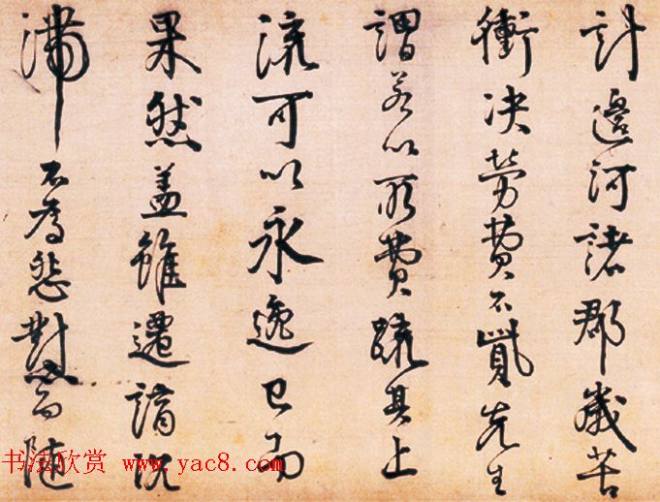 計邊河諸郡歲苦
衝決勞費不貲先生
謂若以所費疏其上
流可以永逸已而
果然蓋雖遷謫沉
滯不為懟而隨
书法欣赏 www.yac8.com